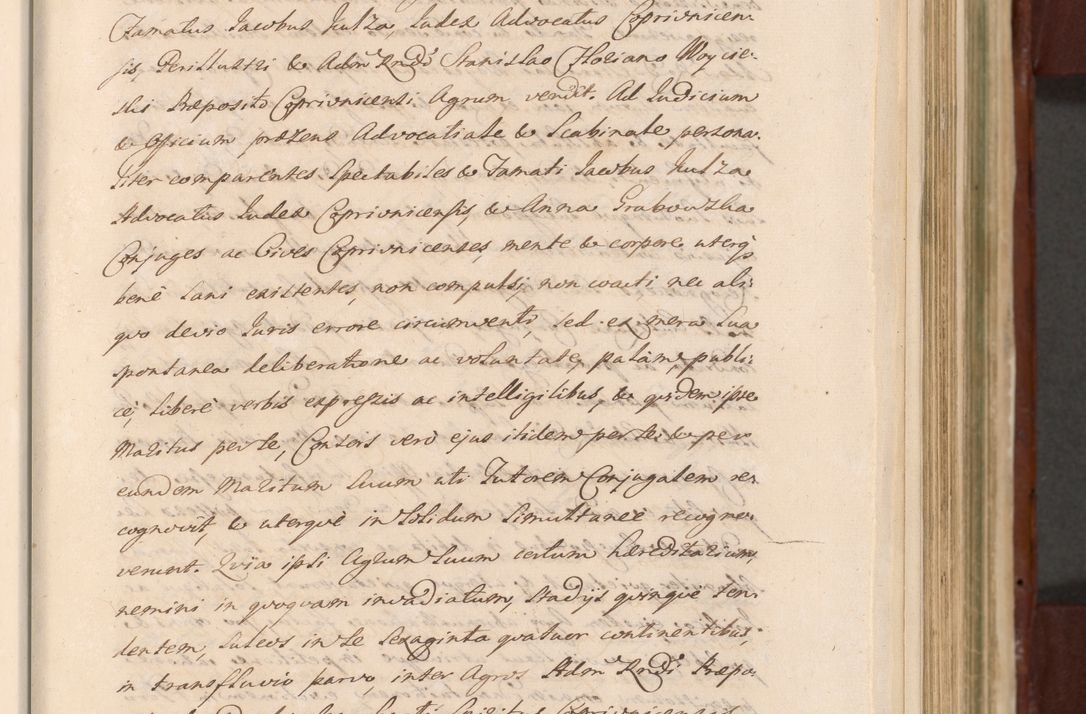 Famatus Jacobus Kulza Judex Advocatus Coprivnicen:
sis, Perillustri & Admˢ Rndo Stanislao Floriano Woycie:
ski Præposito Coprivnicensi Agrum vendit. Ad Judicium
& Officium præsens Advocatiale & Scabinale persona:
liter comparentes Spectabiles & Famati Jacobus Kulza
Advocatus Judex Coprivnicensis, & Anna Grabowzka
Conjuges ac Cives Coprivnicenses, mente & corpore, uterq;
benè sani existentes, non compulsi, non coacti nec ali:
quo devio Juris errore circumventi, sed ex mera sua
spontanea deliberatione ac voluntate, palam, publi:
cè, liberè verbis expressis ac intelligilibus, & quidem ipse
Maritus per se, Consors verò ejus itidem per se, & per
eundem Maritum suum uti Tutorem Conjugalem re:
cognovit, & uterquè in solidum simultaneè recogno:
verunt. Quia ipsi Agrum suum certum hæreditarium,
nemini in quoquam invadiatum, Stadijs quinquè ten:
dentem, sulcos in se sexaginta quatuor continentibus,
in transfluvio parvo, inter Agros Admˢ Rndi Præpo:
Sancti Spiritus Coprivnicensis